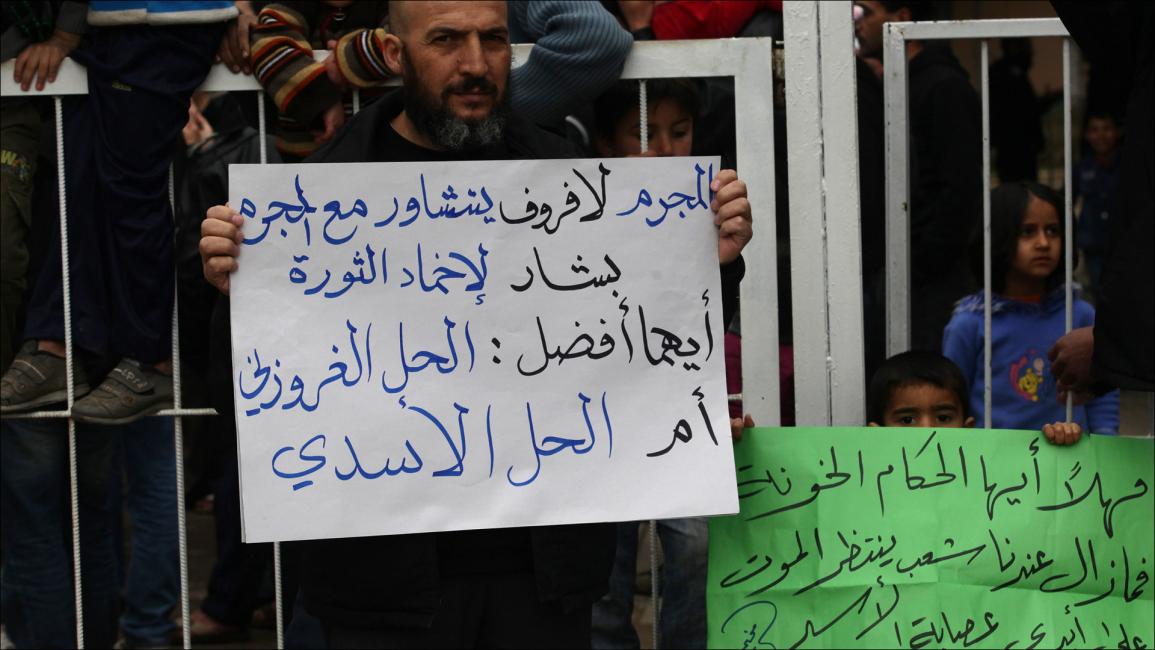 المجرم لافروف يتشاور مع المجرم
بشار لإخماد الثورة
أيهما أفضل : الحل الغروزني
أم الحل الأسدي
مهلاً أيها الحكام الخونة
فمازال عندنا شعب ينتظر الموت
على أيدي عصابة الأسد